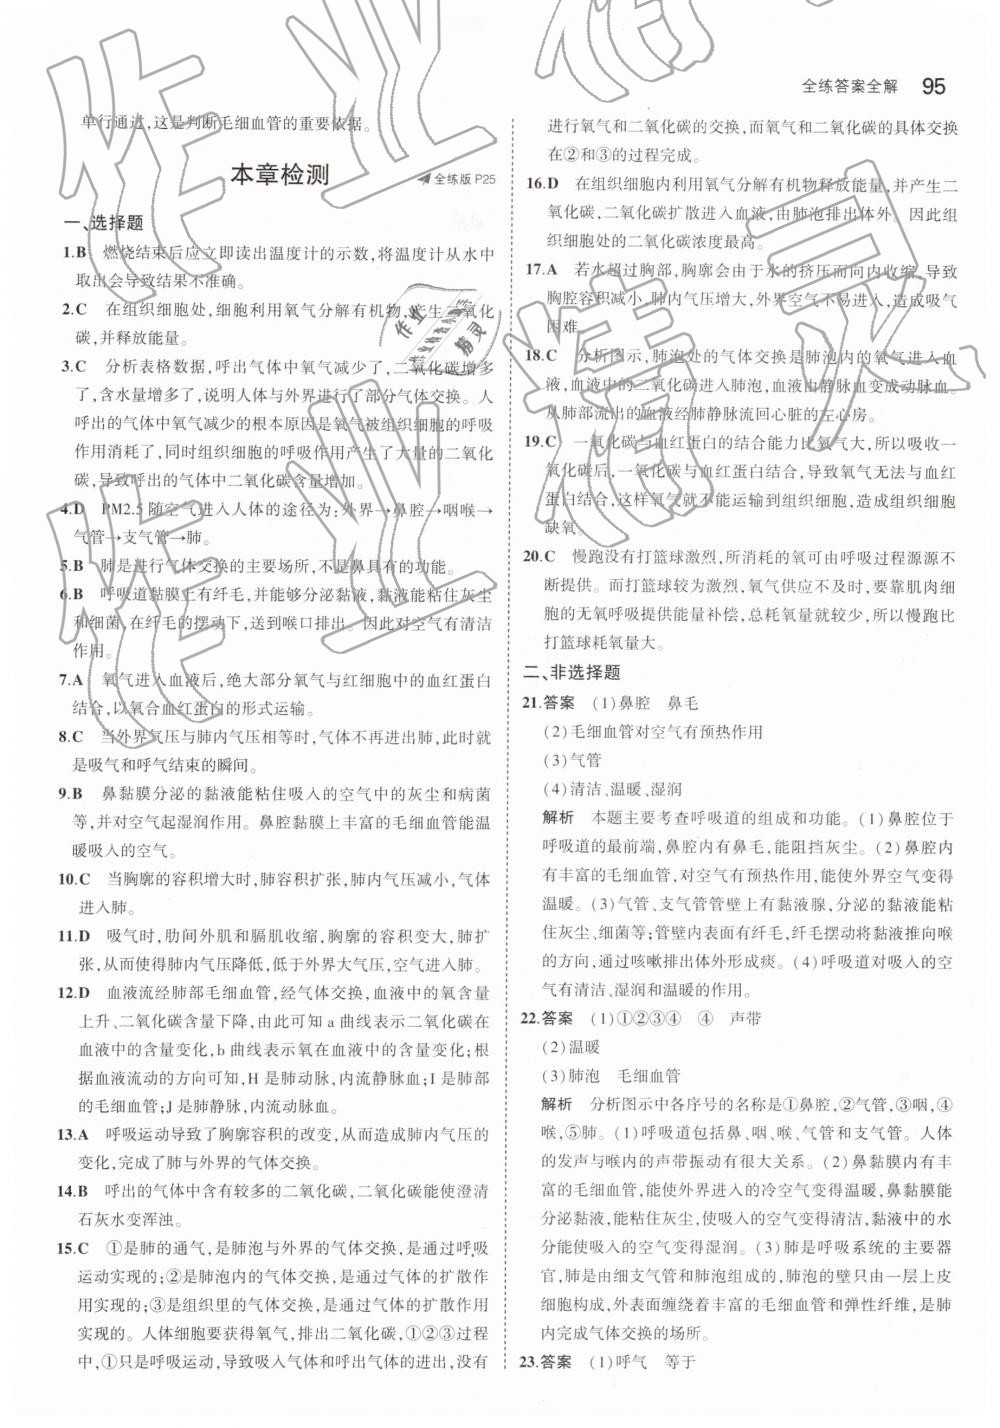 全练答案全解 95
单行通过,这是判断毛细血管的重要依据。
本章检测 全练版 P25
一、选择题
1.B 燃烧结束后应立即读出温度计的示数,将温度计从水中
取出会导致结果不准确。
2.C 在组织细胞处,细胞利用氧气分解有机物,产生二氧化
碳,并释放能量。
3.C 分析表格数据,呼出气体中氧气减少了,二氧化碳增多
了,含水量增多了,说明人体与外界进行了部分气体交换。人
呼出的气体中氧气减少的根本原因是氧气被组织细胞的呼吸
作用消耗了,同时组织细胞的呼吸作用产生了大量的二氧化
碳,导致呼出的气体中二氧化碳含量增加。
4.D PM2.5 随空气进入人体的途径为:外界→鼻腔→咽喉→
气管→支气管→肺。
5.B 肺是进行气体交换的主要场所,不是鼻具有的功能。
6.B 呼吸道黏膜上有纤毛,并能够分泌黏液,黏液能粘住灰尘
和细菌,在纤毛的摆动下,送到喉口排出。因此对空气有清洁
作用。
7.A 氧气进入血液后,绝大部分氧气与红细胞中的血红蛋白
结合,以氧合血红蛋白的形式运输。
8.C 当外界气压与肺内气压相等时,气体不再进出肺,此时就
是吸气和呼气结束的瞬间。
9.B 鼻黏膜分泌的黏液能粘住吸入的空气中的灰尘和病菌
等,并对空气起湿润作用。鼻腔黏膜上丰富的毛细血管能温
暖吸入的空气。
10.C 当胸廓的容积增大时,肺容积扩张,肺内气压减小,气体
进入肺。
11.D 吸气时,肋间外肌和膈肌收缩,胸廓的容积变大,肺扩
张,从而造成肺内气压降低,低于外界大气压,空气进入肺。
12.D 血液流经肺部毛细血管,经气体交换,血液中的氧含量
上升、二氧化碳含量下降,由此可知 a 曲线表示二氧化碳在
血液中的含量变化,b 曲线表示氧在血液中的含量变化;根
据血液流动的方向可知,H 是肺动脉,内流静脉血;I 是肺部
的毛细血管;J 是肺静脉,内流动脉血。
13.A 呼吸运动导致了胸廓容积的改变,从而造成肺内气压的
变化,完成了肺与外界的气体交换。
14.B 呼出的气体中含有较多的二氧化碳,二氧化碳能使澄清
石灰水变浑浊。
15.C ①是肺的通气,是肺泡与外界的气体交换,是通过呼吸
运动实现的;②是肺泡内的气体交换,是通过气体的扩散作
用实现的;③是组织里的气体交换,是通过气体的扩散作用
实现的。人体细胞要获得氧气,排出二氧化碳,①②③过程
中,①只是呼吸运动,导致吸入气体和呼出气体的进出,没有
进行氧气和二氧化碳的交换,而氧气和二氧化碳的具体交换
在②和③的过程完成。
16.D 在组织细胞内利用氧气分解有机物释放能量,并产生二
氧化碳,二氧化碳扩散进入血液,由肺泡排出体外。因此组
织细胞处的二氧化碳浓度最高。
17.A 若水超过胸部,胸廓会由于水的挤压而向内收缩,导致
胸腔容积减小,肺内气压增大,外界空气不易进入,造成吸气
困难。
18.C 分析图示,肺泡处的气体交换是肺泡内的氧气进入血
液,血液中的二氧化碳进入肺泡,血液由静脉血变成动脉血。
从肺部流出的血液经肺静脉流回心脏的左心房。
19.C 一氧化碳与血红蛋白的结合能力比氧气大,所以吸收一
氧化碳后,一氧化碳与血红蛋白结合,导致氧气无法与血红
蛋白结合,这样氧气就不能运输到组织细胞,造成组织细胞
缺氧。
20.C 慢跑没有打篮球激烈,所消耗的氧可由呼吸过程源源不
断提供。而打篮球较为激烈,氧气供应不及时,要靠肌肉细
胞的无氧呼吸提供能量补偿,总耗氧量就较少,所以慢跑比
打篮球耗氧量大。
二、非选择题
21.答案 (1)鼻腔 鼻毛
(2)毛细血管对空气有预热作用
(3)气管
(4)清洁、温暖、湿润
解析 本题主要考查呼吸道的组成和功能。(1)鼻腔位于
呼吸道的最前端,鼻腔内有鼻毛,能阻挡灰尘。(2)鼻腔内
有丰富的毛细血管,对空气有预热作用,能使外界空气变得
温暖。(3)气管、支气管管壁上有黏液腺,分泌的黏液能粘
住灰尘、细菌等;管壁内表面有纤毛,纤毛摆动将黏液推向喉
的方向,通过咳嗽排出体外形成痰。(4)呼吸道对吸入的空
气有清洁、湿润和温暖的作用。
22.答案 (1)①②③④ ④ 声带
(2)温暖
(3)肺泡 毛细血管
解析 分析图示中各序号的名称是①鼻腔,②气管,③咽,④
喉,⑤肺。(1)呼吸道包括鼻、咽、喉、气管和支气管。人体
的发声与喉内的声带振动有很大关系。(2)鼻黏膜内有丰
富的毛细血管,能使外界进入的冷空气变得温暖,鼻黏膜能
分泌黏液,能粘住灰尘,使吸入的空气变得清洁,黏液中的水
分能使吸入的空气变得湿润。(3)肺是呼吸系统的主要器
官,肺是由细支气管和肺泡组成的,肺泡的壁只由一层上皮
细胞构成,外表面缠绕着丰富的毛细血管和弹性纤维,是肺
内完成气体交换的场所。
23.答案 (1)呼气 等于